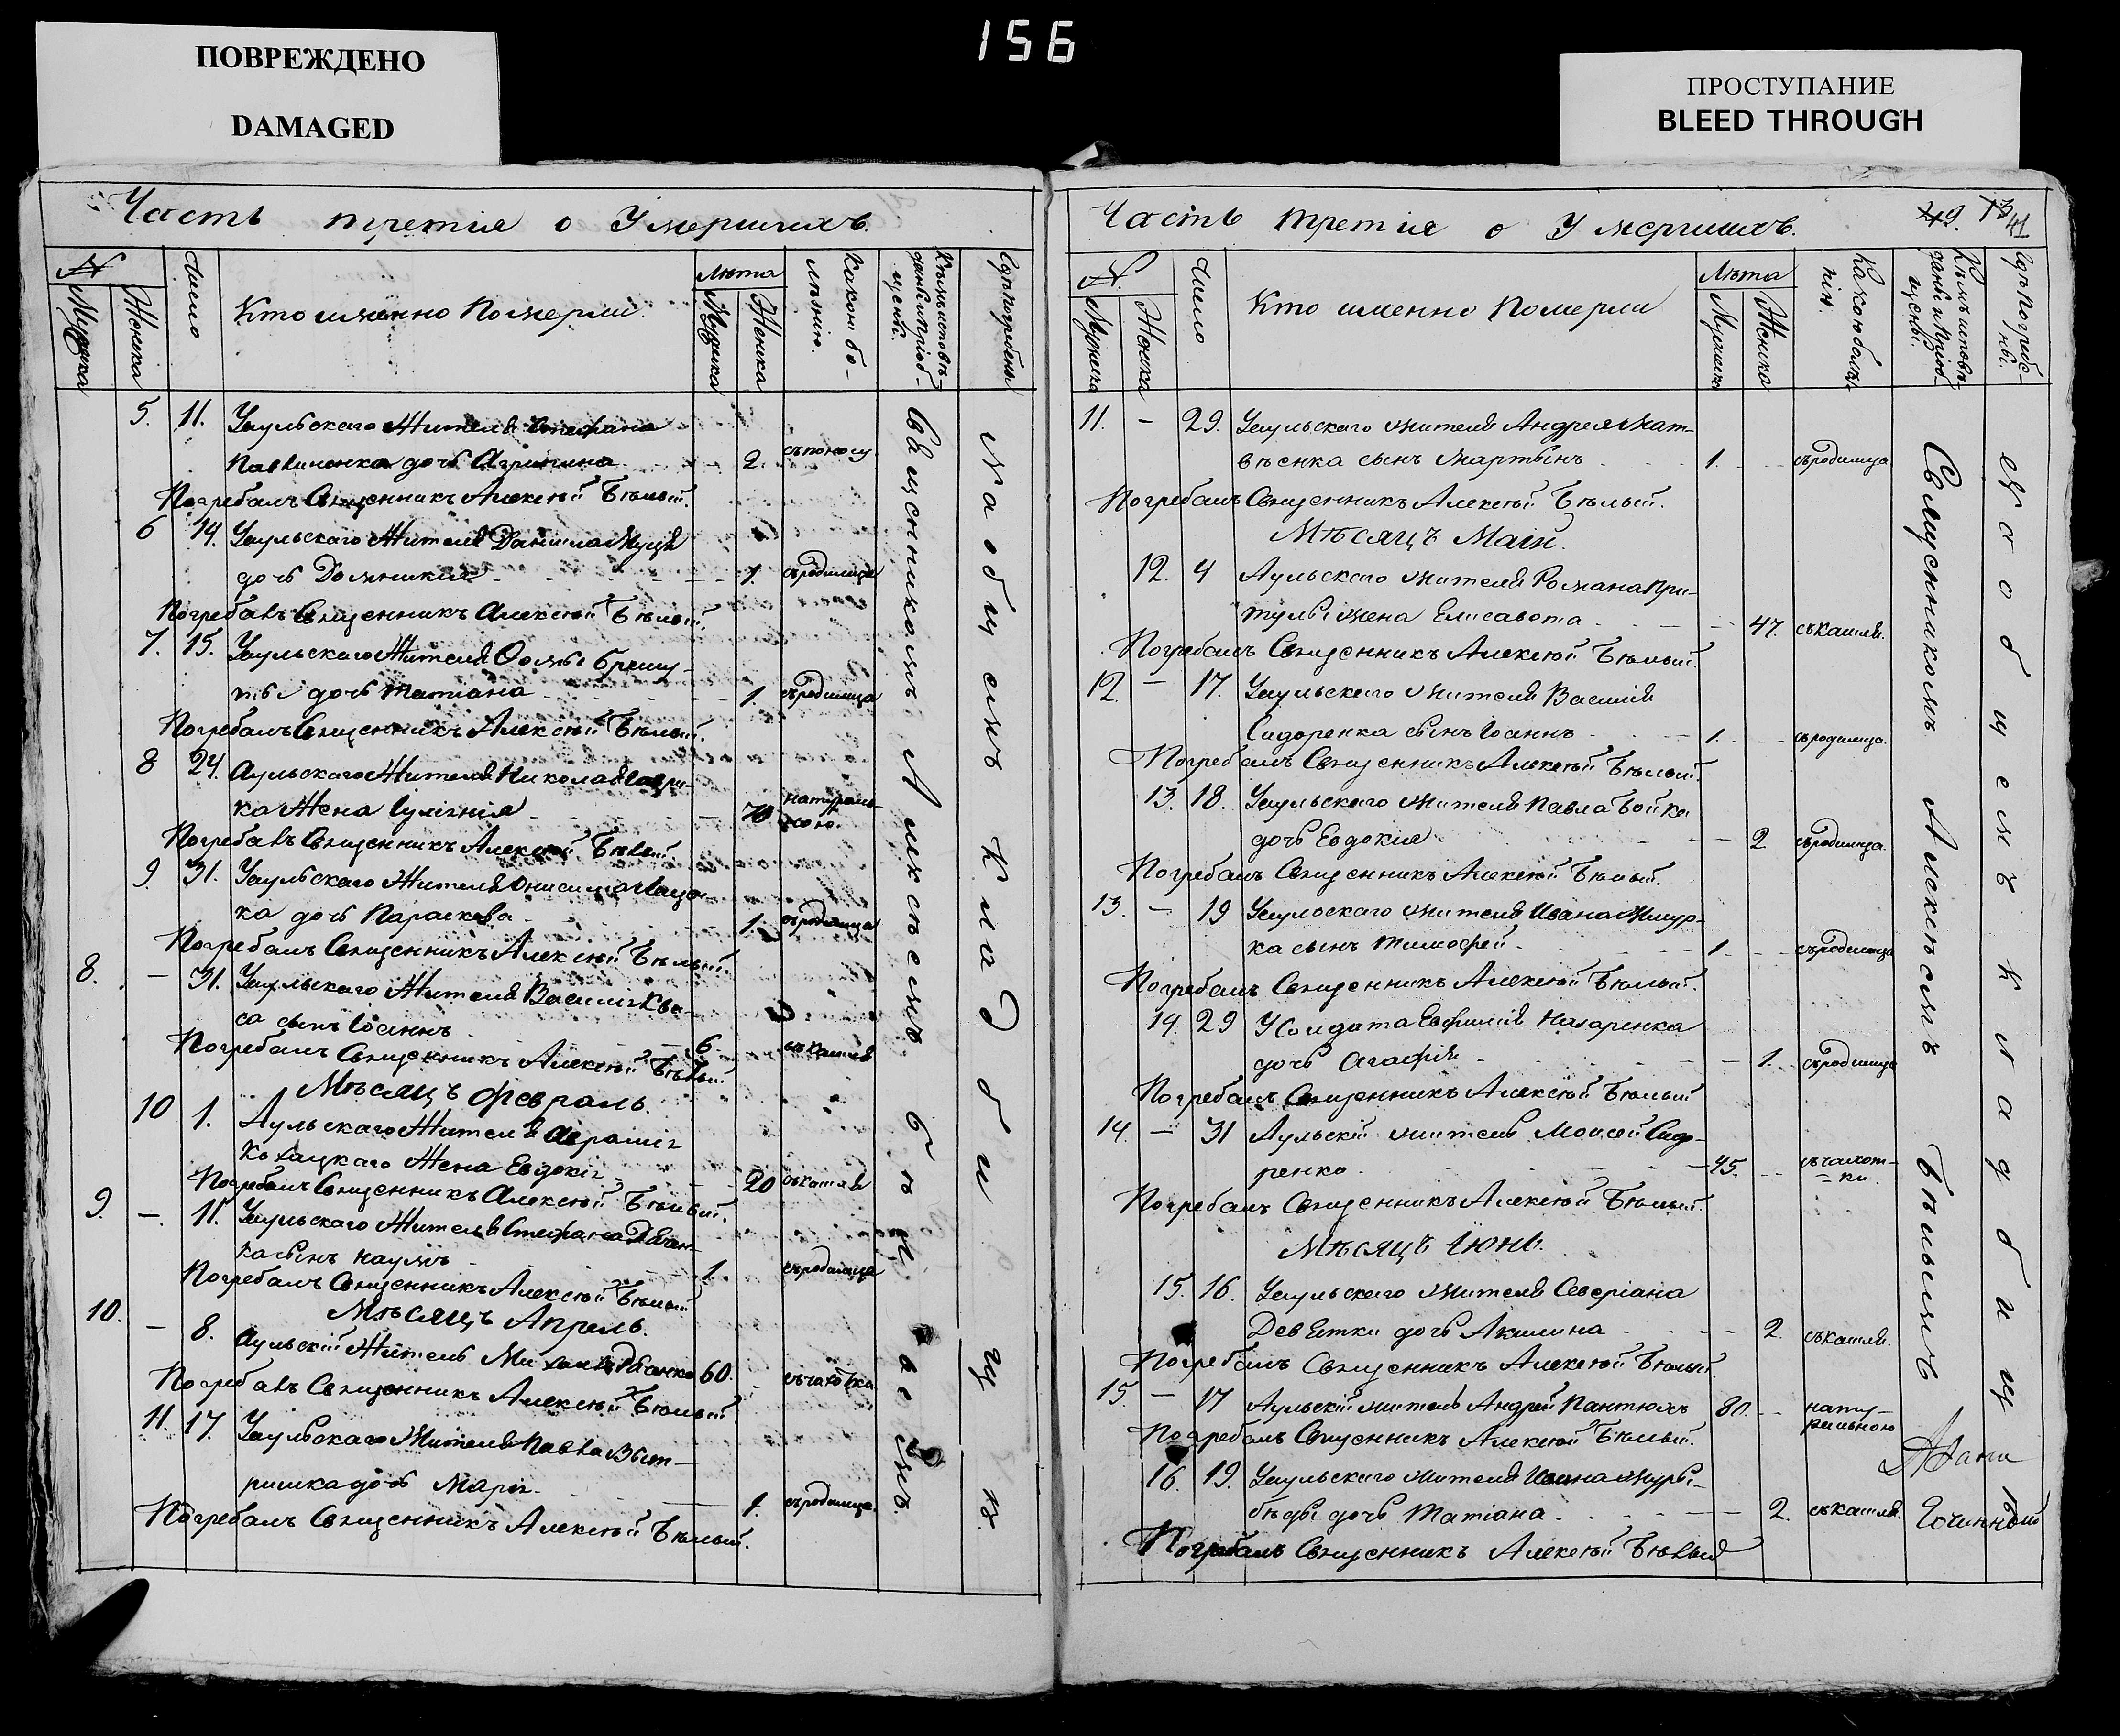 156
ПОВРЕЖДЕНО
DAMAGED
ПРОСТУПАНИЕ
BLEED THROUGH
Часть третія о Умершихъ.
№
Мужска
Женска
Число
Кто именно Померли.
Лѣта
Мужска
Женска
Какою бо-
лѣзнію.
Кѣмъ исповѣ-
даны и пріоб-
щены.
Гдѣ погребены
5. 11. Уаульского Жителя Стефана
Павличенка дочь Агрипина 2. съ поносу
Погребалъ Священникъ Алексѣй Бѣлый.
6 14. Уаульского Жителя Данила Муця
дочь Домникія 1. съродимца
Погребавъ Священникъ Алексѣй Бѣлый.
7. 15. Уаульского Жителя Ѳомы брешу-
ты дочь Татіана 1. съродимца
Погребалъ Священникъ Алексѣй Бѣлый.
8 24. Аульского Жителя Николая
ка Жена Іулінія 70 натураль-
ною.
Погребавъ Священникъ Алексѣй Бѣлый
9. 31. Уаульского Жителя Онисима Маця-
ка дочь Параскева 1. съродимца
Погребалъ Священникъ Алексѣй Бѣлый.
8. — 31. Уаульского Жителя Василія Ква-
са сынъ Іоаннъ 6 съкашля
Погребалъ Священникъ Алексѣй Бѣлый
Мѣсяцъ Февраль.
10 1. Аульского Жителя
Козацкаго Жена Евдокія 20 съкашля
Погребалъ Священникъ Алексѣй Бѣлый.
9. — 11. Уаульского Жителя Стефана
ка сынъ Наумъ 1. съродимца
Погребалъ Священникъ Алексѣй Бѣлый
Мѣсяцъ Апрель.
10. — 8. Аульскій Житель 60. съчахотка
Погребавъ Священникъ Алексѣй Бѣлый
11. 17. Уаульского Жителя Павла
ришка дочь Марія 1. съродимца.
Погребалъ Священникъ Алексѣй Бѣлый.
Священникомъ Алексѣемъ Бѣлымъ.
На общемъ Кладбищѣ.
Часть третія о Умершихъ.
49. 13 41
№.
Мужска
Женска
Число
Кто именно Померли
Лѣта
Мужска
Женска
Какою болѣз-
нію.
Кѣмъ исповѣ-
даны и пріоб-
щены.
Гдѣ погребе-
ны.
11. — 29. Уаульского жителя Андрея Мат-
вѣенка сынъ Мартынъ 1. съродимца
Погребалъ Священникъ Алексѣй Бѣлый.
Мѣсяцъ Маій.
12. 4 Аульского жителя Романа При-
тулы жена Елисавета 47. съкашля.
Погребалъ Священникъ Алексѣй Бѣлый.
12. — 17. Уаульского жителя Василія
Сидоренка сынъ Іоаннъ 1. съродимца.
Погребалъ Священникъ Алексѣй Бѣлый.
13. 18. Уаульского жителя Павла Бойка
дочь Евдокія 2 съродимца.
Погребалъ Священникъ Алексѣй Бѣлый.
13. — 19 Уаульского жителя Ивана Жмур-
ка сынъ Тимофей 1. съродимца
Погребалъ Священникъ Алексѣй Бѣлый.
14. 29 У Солдата Евфимія Назаренка
дочь Агафія 1. съродимца
Погребалъ Священникъ Алексѣй Бѣлый
14. — 31 Аульскій житель Моисей Сидо-
ренко 45. съчахот-
ки.
Погребалъ Священникъ Алексѣй Бѣлый.
Мѣсяцъ Іюнь.
15. 16. Уаульского жителя Северіана
Девятки дочь Акилина 2. съкашля.
Погребалъ Священникъ Алексѣй Бѣлый.
15. — 17 Аульскій житель Андрей Пантюхъ 80. нату-
ральною
Погребалъ Священникъ Алексѣй Бѣлый.
16. 19. Уаульского жителя Ивана Журы-
бѣды дочь Татіана 2. съкашля.
Погребалъ Священникъ Алексѣй Бѣлый
Священникомъ Алексѣемъ Бѣлымъ
На общемъ кладбищѣ